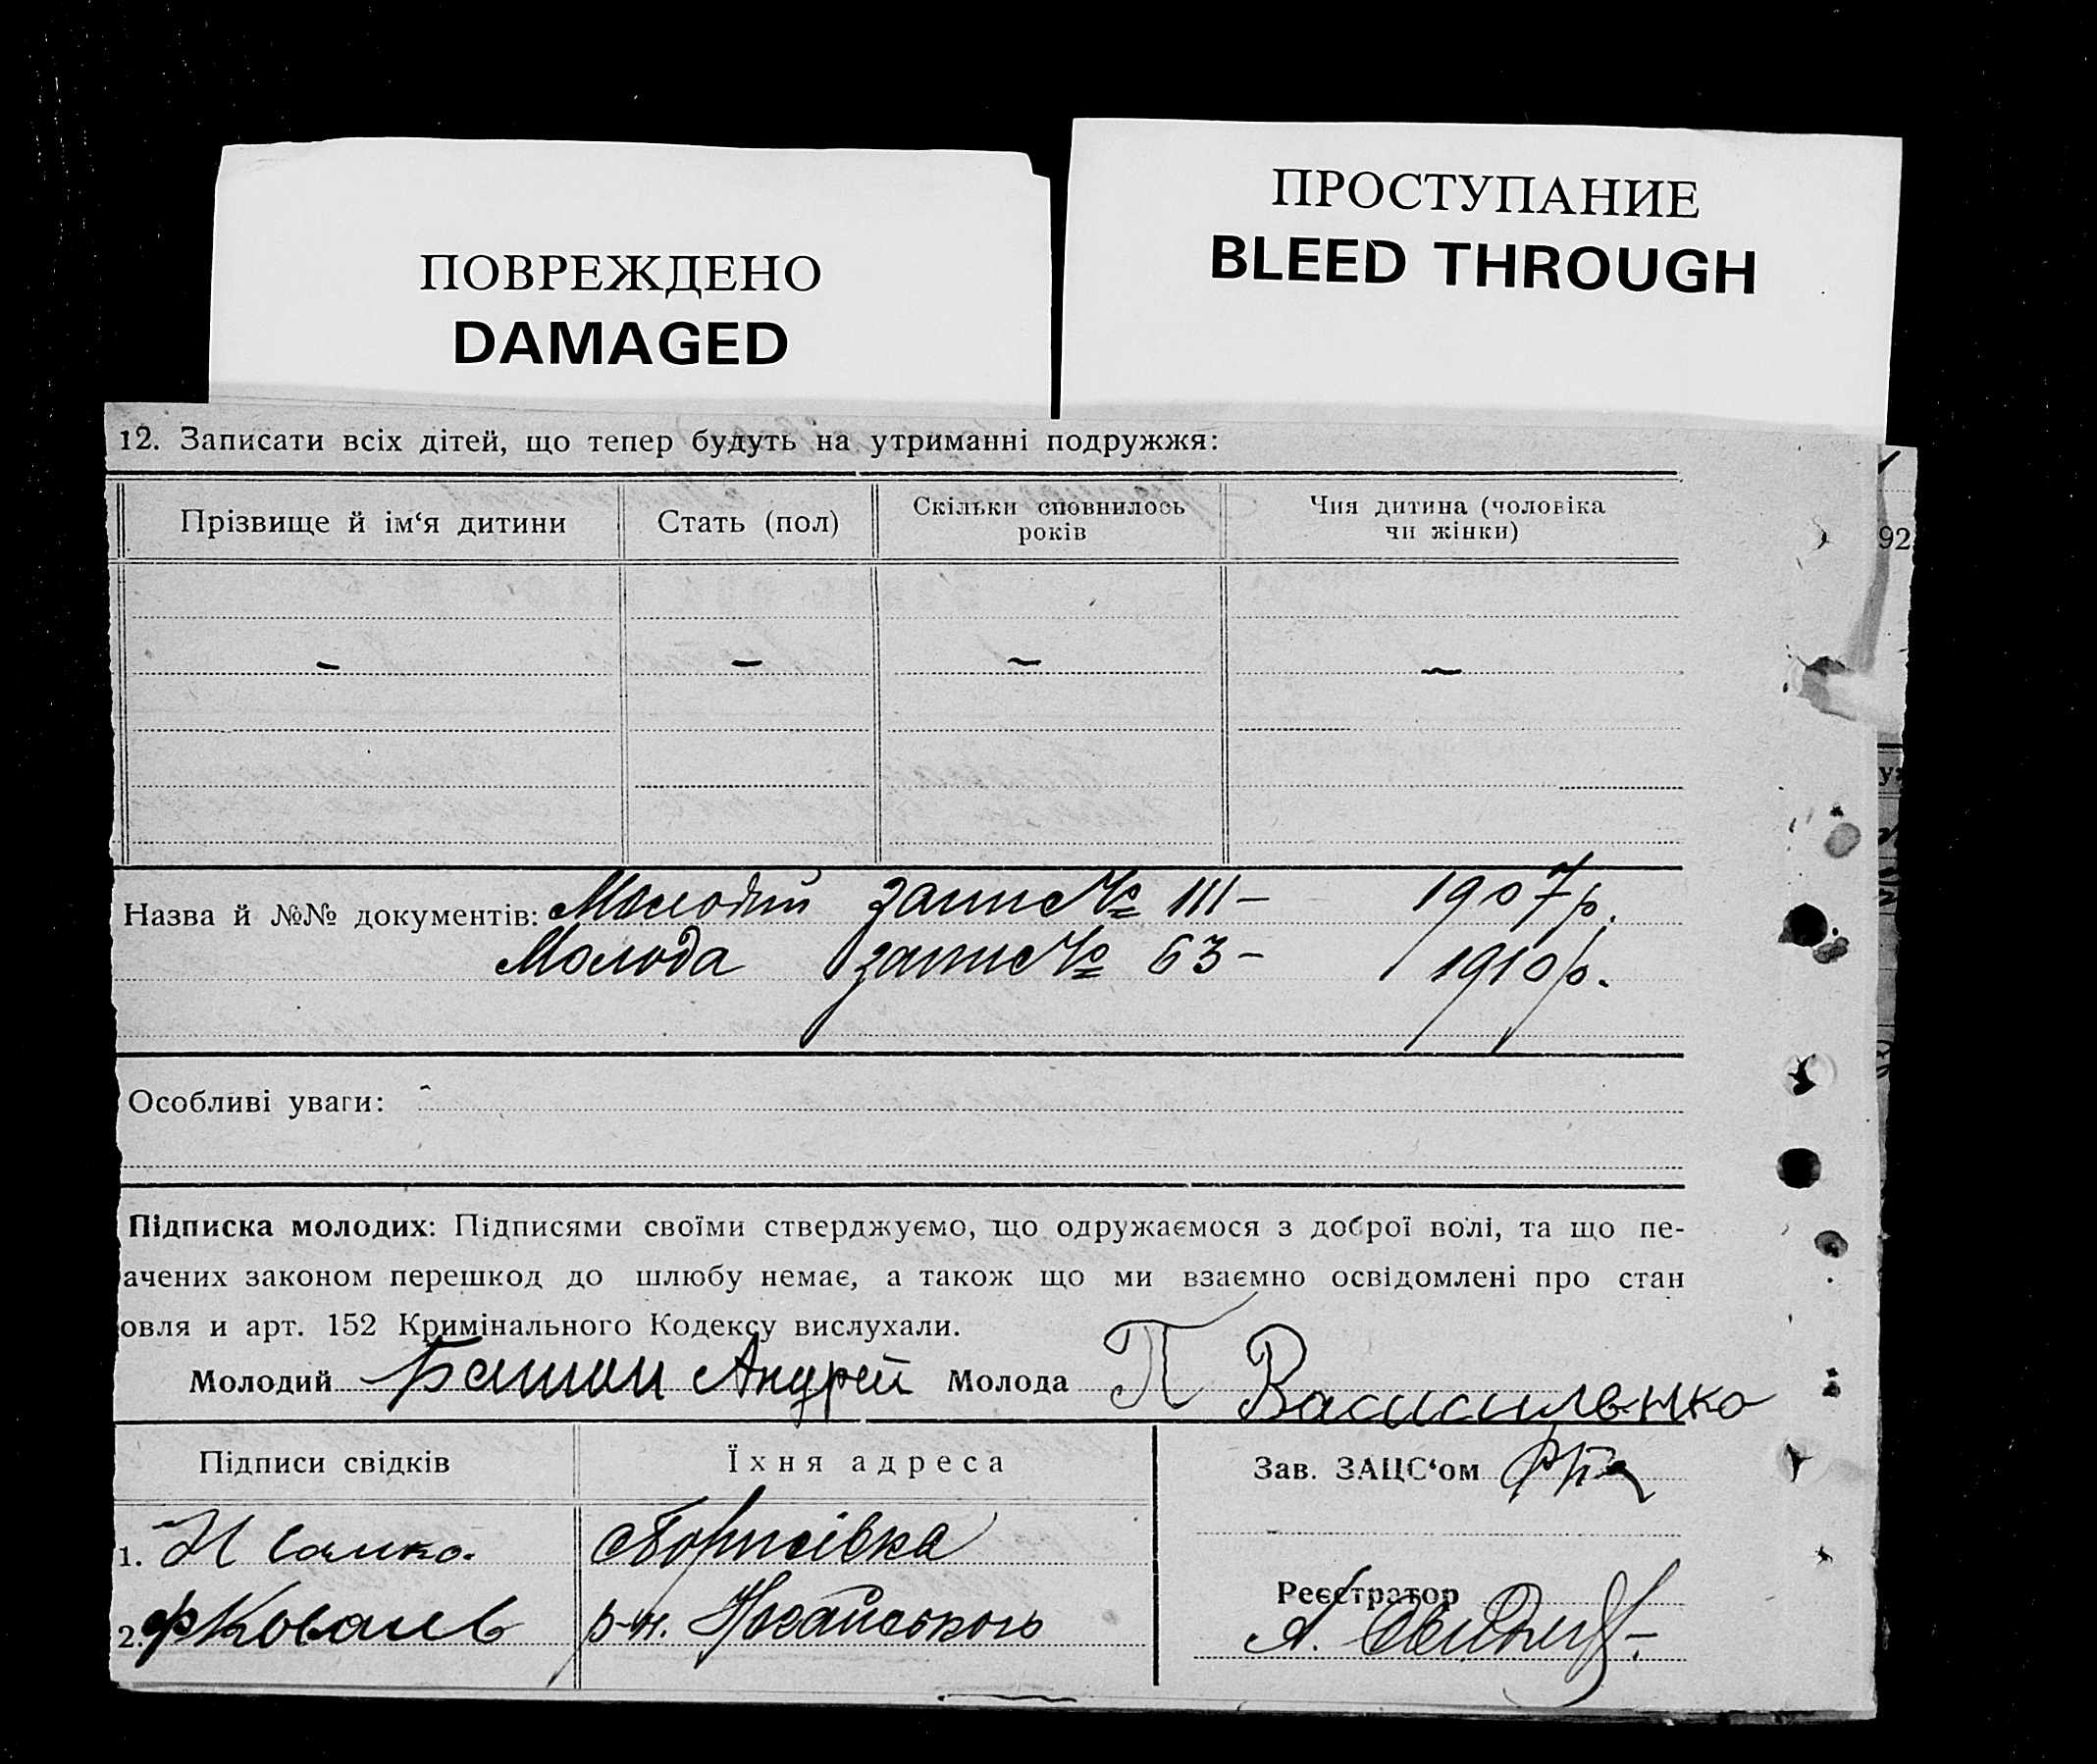 ПОВРЕЖДЕНО
DAMAGED
ПРОСТУПАНИЕ
BLEED THROUGH
12. Записати всіх дітей, що тепер будуть на утриманні подружжя:
Прізвище й ім‘я дитини
Стать (пол)
Скільки сповнилось
років
Чия дитина (чоловіка
чи жінки)
92
– – – –
Назва й №№ документів: Молодий запис № 111 – 1907 р.
Молода запис № 63 – 1910 р.
Особливі уваги:
Підписка молодих: Підписями своїми стверджуємо, що одружаємося з доброї волі, та що пе-
ачених законом перешкод до шлюбу немає, а також що ми взаємно освідомлені про стан
овля и арт. 152 Кримінального Кодексу вислухали.
Молодий Андрей Молода П Василенко
Підписи свідків
Їхня адреса
Зав. ЗАЦС‘ом
1.
Борисівка
Реєстратор
2. Ф Ковалів
р-н. Ногайського
А.